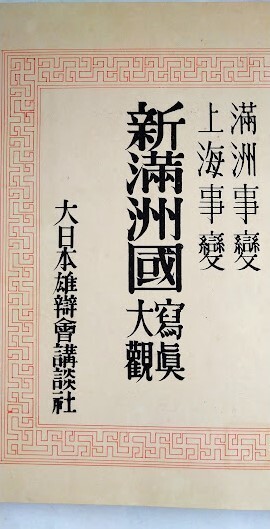 滿洲事變
上海事變
新滿洲國寫眞大觀
大日本雄辯會講談社